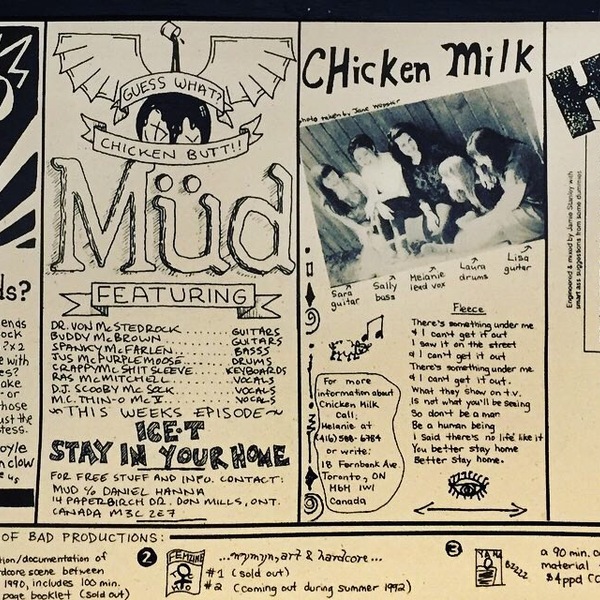 ds?
ends
ock
?x2
e with
es?
ake
- or
those
ust the
tess.
oyle
n clow
e us
GUESS WHAT?
CHICKEN BUTT!!
Müd
FEATURING
DR. VON McSTEDROCK......... GUITARS
BUDDY McBROWN............ GUITARS
SPANKY McFARLEN........... BASSS
JUS McPURPLEMOOSE........ DRUMS
CRAPPY Mc SHIT SLEEVE..... KEYBOARDS
RAS McMITCHELL........... VOCALS
D.J. SCOOBY Mc SCK....... VOCALS
M.C. THIN-O McV........... VOCALS
~THIS WEEKS EPISODE~
ICE-T
STAY IN YOUR HOME
FOR FREE STUFF AND INFO. CONTACT:
MUD % DANIEL HANNA
14 PAPERBIRCH DR. DON MILLS, ONT.
CANADA M3C 2E7
CHicken Milk
photo taken by Jane
Sara
guitar
Sally
bass
Melanie
lead vox
Laura
drums
Lisa
guitar
Fleece
There's something under me
& I can't get it out
I saw it on the street
& I can't get it out
There's something under me
& I can't get it out.
What they show on t.v.
Is not what you'll be seeing
So don't be a man
Be a human being
I said there's no life like it
You better stay home
Better stay home.
For more
information about
Chicken Milk
Call:
Melanie at
(416) 588-6784
or write:
18 Fernbank Ave
Toronto, ON
M6H 1W1
Canada
H
Engineered & mixed by Jamie Stanley with
smart ass suggestions from some dummies
OF BAD PRODUCTIONS:
tion/documentation of
rdcore scene between
1990, includes 100 min.
page booklet (sold out)
2
...myn, art & hardcore...
#1 (sold out)
#2 (coming out during summer 1992)
3
BZZZZ
a 90 min. co
material
$4ppd (C